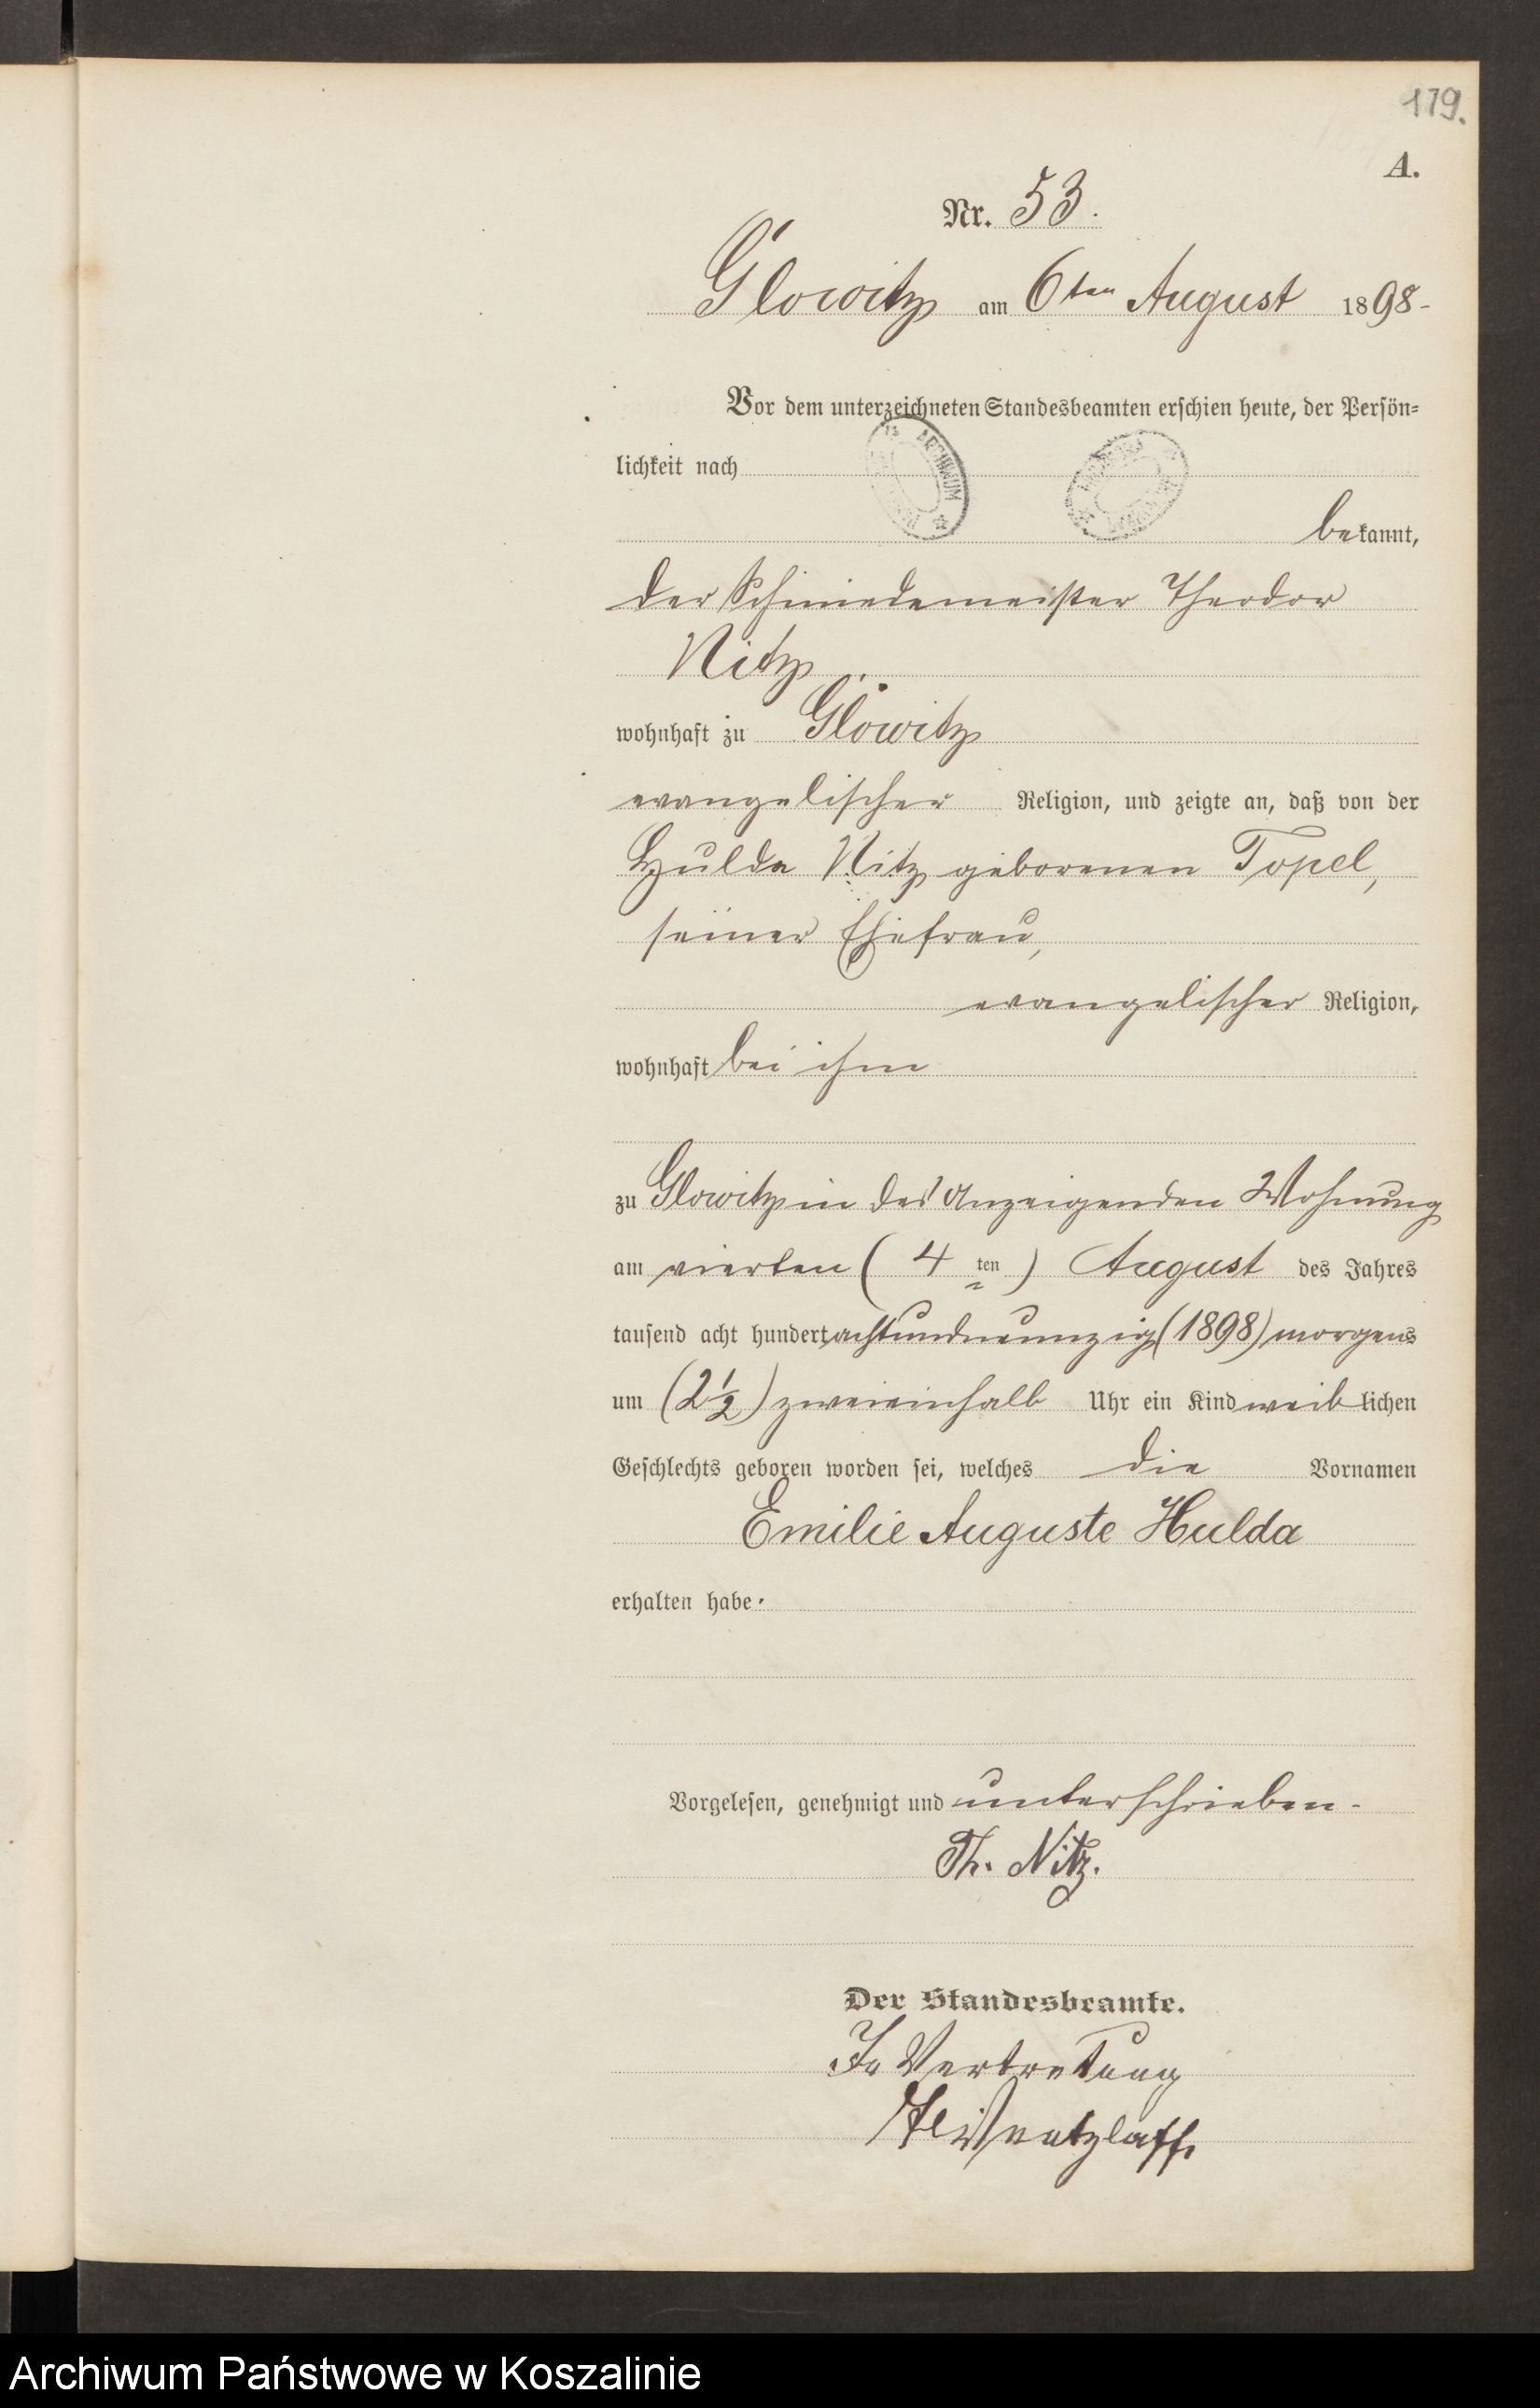 179.
A.
Nr. 53.
Glowitz am 6ten August 1898-
Vor dem unterzeichneten Standesbeamten erschien heute, der Persön=
lichkeit nach
ARCHIWUM
bekannt,
der Schmiedemeister Theodor
Nitz
wohnhaft zu Glowitz
evangelischer Religion, und zeigte an, daß von der
Hulda Nitz geborenen Topel,
seiner Ehefrau,
evangelischer Religion,
wohnhaft bei ihm
zu Glowitz in des Anzeigenden Wohnung
am vierten (4ten) August des Jahres
tausend acht hundert achtundneunzig (1898) morgens
um (2½) zweieinhalb Uhr ein Kind weiblichen
Geschlechts geboren worden sei, welches die Vornamen
Emilie Auguste Hulda
erhalten habe.
Vorgelesen, genehmigt und unterschrieben-
Th. Nitz.
Der Standesbeamte.
In Vertretung
Wentzlaff.
Archiwum Państwowe w Koszalinie